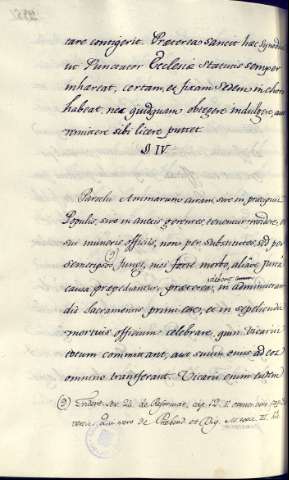 tare contigerit. Præterea sancit hæc Synodus
ut Punctator Ecclesiæ statutis semper
inhæreat, certam, et fixam sedem in choro
habeat, nec quidquam obtegere, indulgere, aut
sibi licere putet.
§ IV.
Parochi Animarum curam, sive in
Populis, sive in gerentes, tenentur
sui muneris officiis, non per substitutos, sed per
semetipsos fungi, nisi forte morbo, aliave justa
causa præpediantur; præterea in administran
dis Sacramentis, et in sepeliendis
mortuis officium celebrare, quin Vicariis
totum committant, aut suum onus ad eos
omnino transferant. Vicarii enim
Trident. Ses. 23. de Reformat. cap. 12.